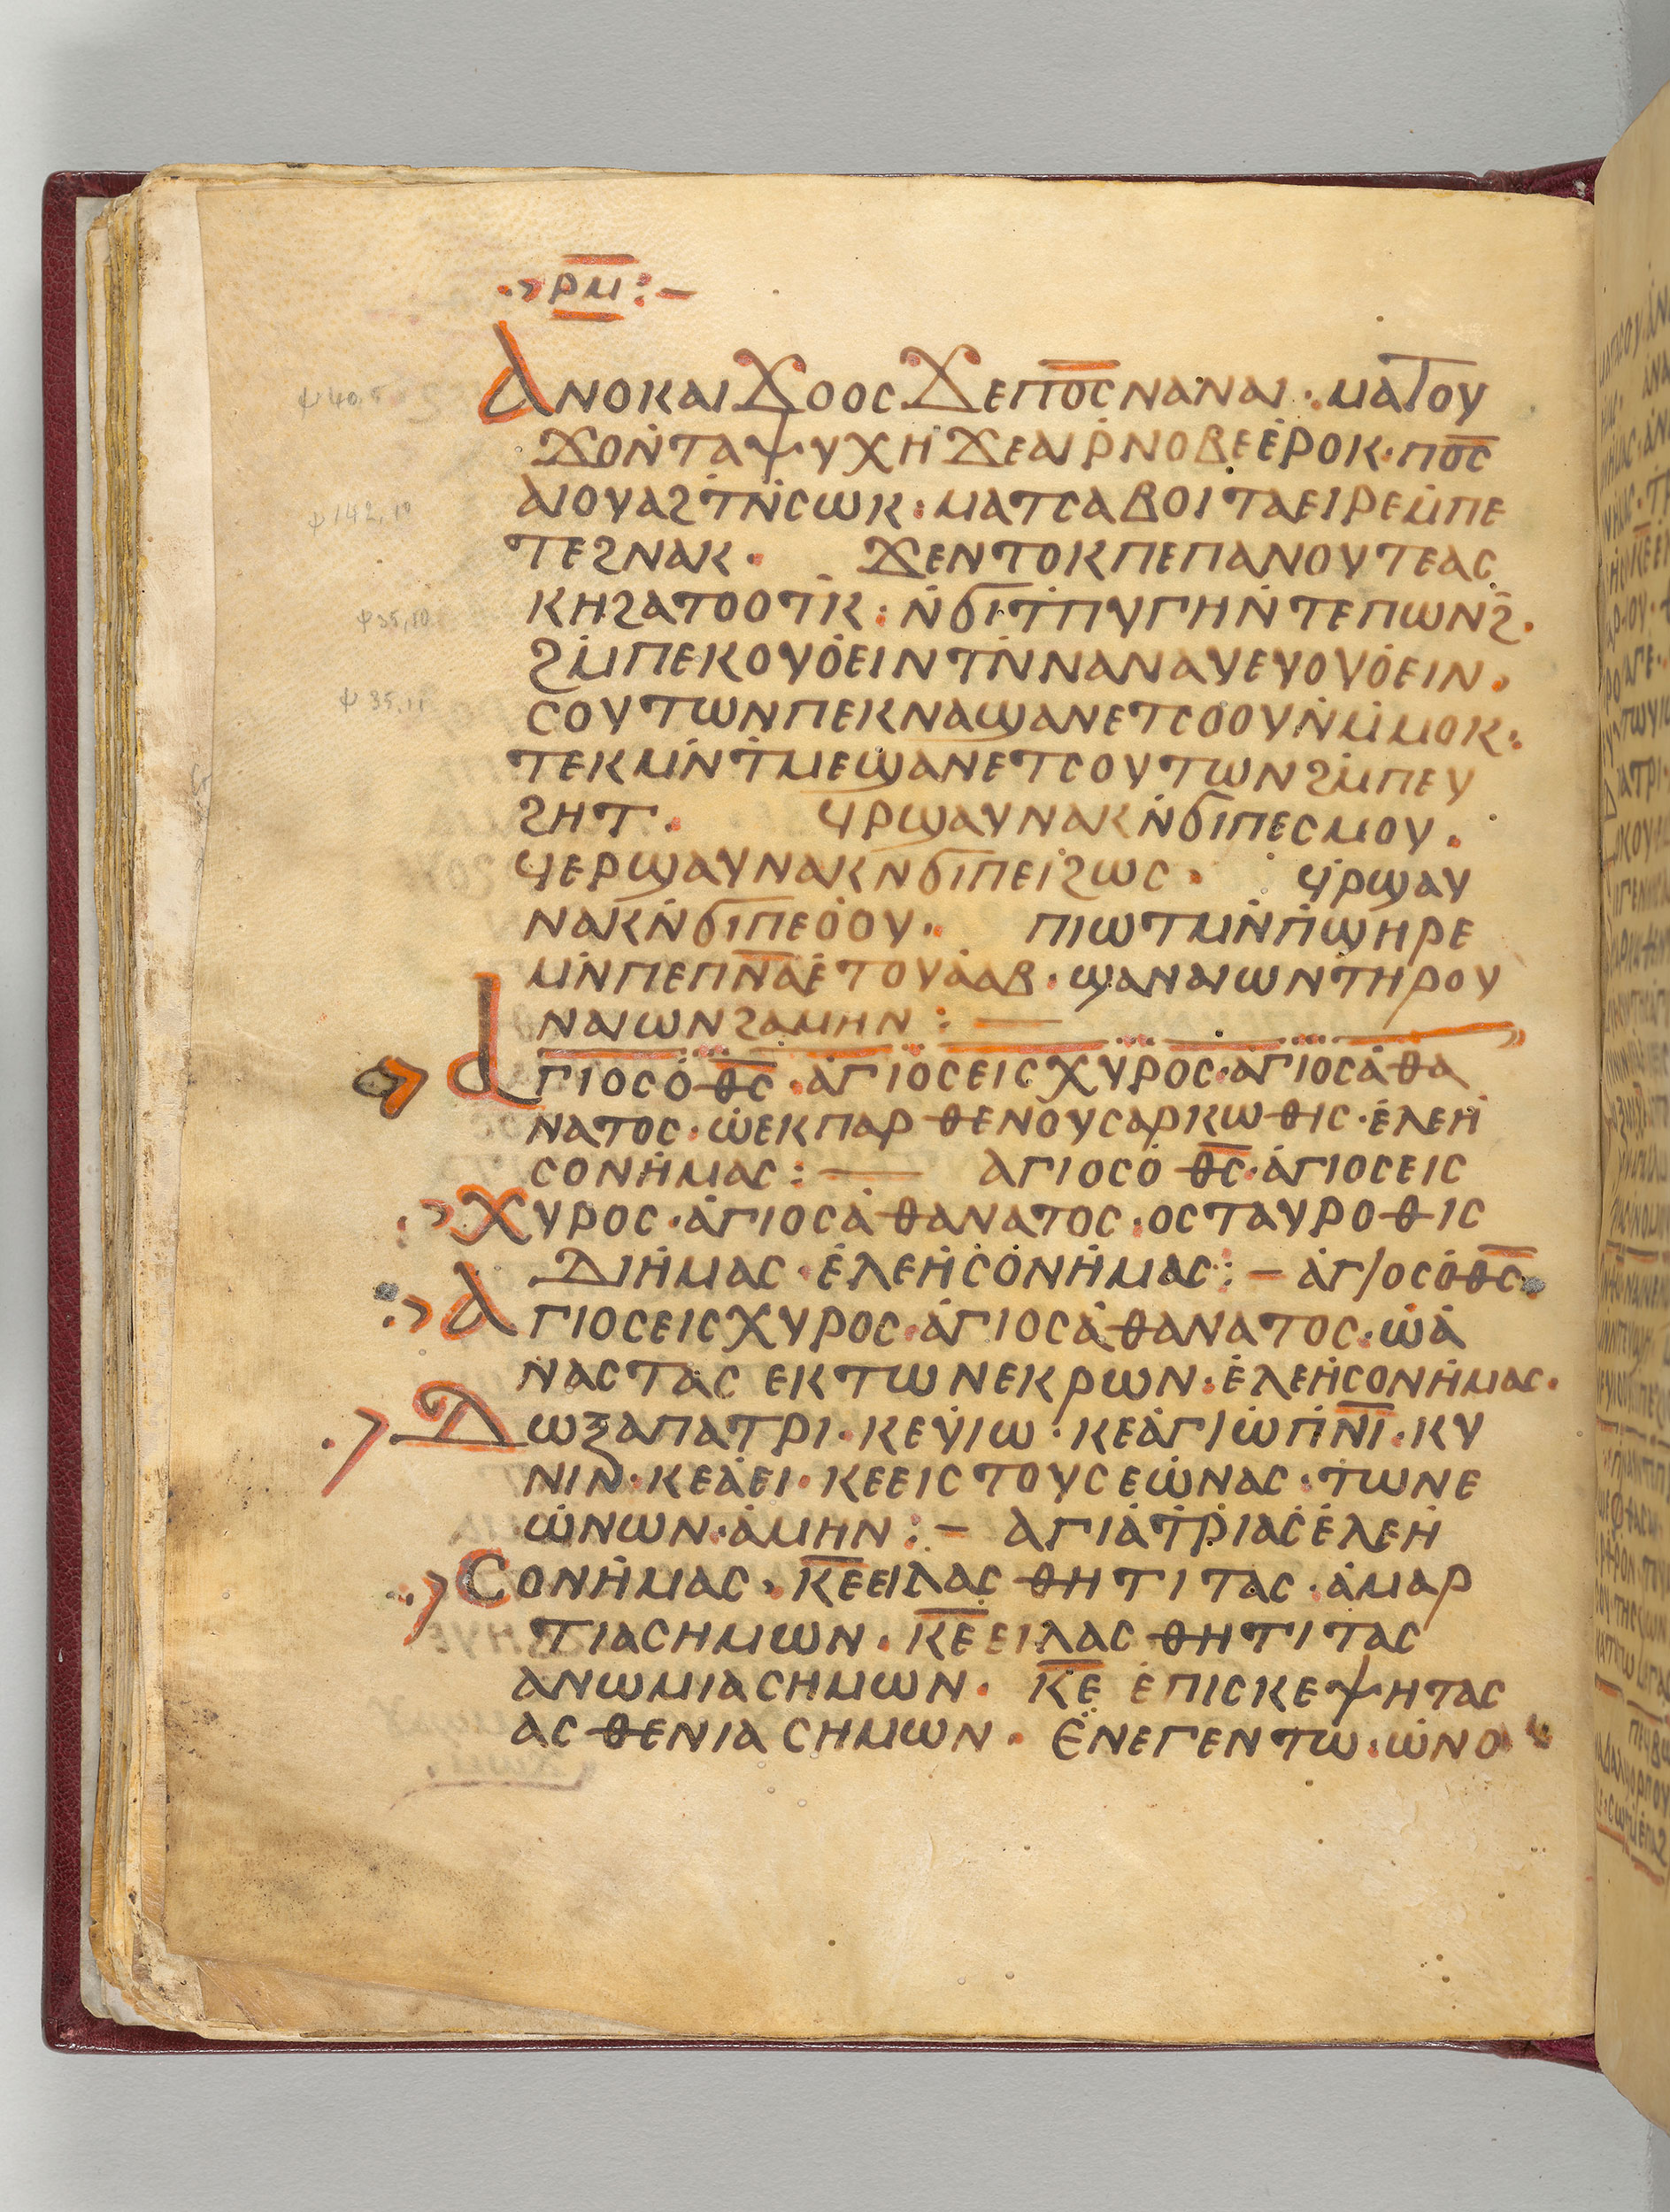 ⲣⲙ̅:—
ⲁⲛⲟⲕⲁⲓϫⲟⲟⲥϫⲉⲡⲟ̅ⲥ̅ⲛⲁⲛⲁⲓ· ⲙⲁⲧⲟⲩ
ϫⲟⲛ̇ⲧⲁⲯⲩⲭⲏ ϫⲉⲁⲓⲣ̇ⲛⲟⲃⲉⲉ̇ⲣⲟⲕ· ⲡⲟ̅ⲥ̅
ⲁⲓⲟⲩⲁϩⲧ̇ⲛ̇ⲥⲱⲕ: ⲙⲁⲧⲥⲁⲃⲟⲓⲧⲁⲉⲓⲣⲉⲙ̇ⲡⲉ
ⲧⲉϩⲛⲁⲕ· ϫⲉⲛⲧⲟⲕⲡⲉⲡⲁⲛⲟⲩⲧⲉⲁⲥ
ⲕⲏϩⲁⲧⲟⲟⲧⲕ̇: ⲛ̇ϭⲓⲧ̇ⲡⲩⲅⲏⲛ̇ⲧⲉⲡⲱⲛϩ̇·
ϩⲙ̇ⲡⲉⲕⲟⲩⲟ̇ⲉⲓⲛⲧⲛ̇ⲛⲁⲛⲁⲩⲉⲩⲟⲩⲟ̇ⲉⲓⲛ·
ⲥⲟⲩⲧⲱⲛⲡⲉⲕⲛⲁϣⲁⲛⲉⲧⲥⲟⲟⲩⲛ̇ⲙ̇ⲙⲟⲕ:
ⲧⲉⲕⲙⲛ̇ⲧ̇ⲙⲉϣⲁⲛⲉⲧⲥⲟⲩⲧⲱⲛϩⲙ̇ⲡⲉⲩ
ϩⲏⲧ· ϥⲣϣⲁⲩⲛⲁⲕⲛ̇ϭⲓⲡⲉⲥⲙⲟⲩ·
ϥⲉⲣϣⲁⲩⲛⲁⲕⲛϭⲓⲡⲉⲓ̇ϩⲱⲥ· ϥ̇ⲣϣⲁⲩ
ⲛⲁⲕⲛ̇ϭⲓⲡⲉⲟ̇ⲟⲩ·· ⲡⲓⲱⲧⲙⲛ̇ⲡ̇ϣⲏⲣⲉ
ⲙⲛ̇ⲡⲉⲡⲛ̅ⲁ̅ⲉ̇ⲧⲟⲩⲁ̇ⲁⲃ· ϣⲁⲛⲁⲓⲱⲛⲧⲏⲣⲟⲩ
ⲛⲁⲓⲱⲛϩⲁⲙⲏⲛ:—
ⲁⲅⲓⲟⲥⲟ̇ⲑ̅ⲥ̅· ⲁ̇ⲅⲓⲟⲥⲉⲓⲥⲭⲩⲣⲟⲥ· ⲁⲅⲓⲟⲥⲁ̇ⲑⲁ
ⲛⲁⲧⲟⲥ· ⲱ̇ⲉⲕⲡⲁⲣⲑⲉⲛⲟⲩⲥⲁⲣⲕⲱⲑⲓⲥ· ⲉ̇ⲗⲉⲏ̇
ⲥⲟⲛⲏ̇ⲙⲁⲥ:— ⲁⲅⲓⲟⲥⲟ̇ⲑ̅ⲥ̅· ⲁ̇ⲅⲓⲟⲥⲉⲓⲥ
ⲭⲩⲣⲟⲥ· ⲁ̇ⲅⲓⲟⲥⲁ̇ⲑⲁⲛⲁⲧⲟⲥ· ⲟⲥⲧⲁⲩⲣⲟⲑⲓⲥ
ⲇⲓⲏ̇ⲙⲁⲥ· ⲉ̇ⲗⲉⲏ̇ⲥⲟ̇ⲛⲏ̇ⲙⲁⲥ:— ⲁ̇ⲅⲓⲟⲥⲟ̇ⲑ̅ⲥ̅·
ⲁⲅⲓⲟⲥⲉⲓⲥⲭⲩⲣⲟⲥ· ⲁ̇ⲅⲓⲟⲥⲁ̇ⲑⲁⲛⲁⲧⲟⲥ· ⲱ̇ⲁ̇
ⲛⲁⲥⲧⲁⲥ ⲉⲕⲧⲱⲛⲉⲕⲣⲱⲛ· ⲉ̇ⲗⲉⲏ̇ⲥⲟⲛⲏ̇ⲙⲁⲥ·
ⲇⲱⲝⲁⲡⲁⲧⲣⲓ· ⲕⲉⲩ̇ⲓⲱ· ⲕⲉⲁ̇ⲅⲓⲱ̇ⲡ̇ⲛ̅ⲓ̅· ⲕⲩ
ⲛⲓⲛ· ⲕⲉⲁ̇ⲉⲓ· ⲕⲉⲉⲓⲥⲧⲟⲩⲥⲉⲱ̇ⲛⲁⲥ· ⲧⲱⲛⲉ
ⲱ̇ⲛⲱⲛ· ⲁ̇ⲙⲏⲛ:— ⲁⲅⲓⲁ̇ⲧ̇ⲣ̇ⲓⲁⲥⲉ̇ⲗⲉⲏ̇
ⲥⲟⲛⲏ̇ⲙⲁⲥ· ⲕ̅ⲉ̅ⲉⲓⲗⲁⲥⲑⲏⲧⲓⲧⲁⲥ· ⲁ̇ⲙⲁⲣ
ⲧⲓⲁⲥⲏⲙⲱⲛ· ⲕ̅ⲉ̅ⲉⲓⲗⲁⲥⲑⲏⲧⲓⲧⲁⲥ
ⲁⲛⲱⲙⲓⲁⲥⲏⲙⲱⲛ· ⲕ̅ⲉ̅ ⲉ̇ⲡⲓⲥⲕⲉⲯⲏⲧⲁⲥ
ⲁⲥⲑⲉⲛⲓⲁⲥⲏⲙⲱⲛ· ⲉ̈ⲛⲉⲅⲉⲛⲧⲱ· ⲱ̇ⲛⲟ
ψ 40,5
ψ 142,10
ψ 35,10
ψ 35,11